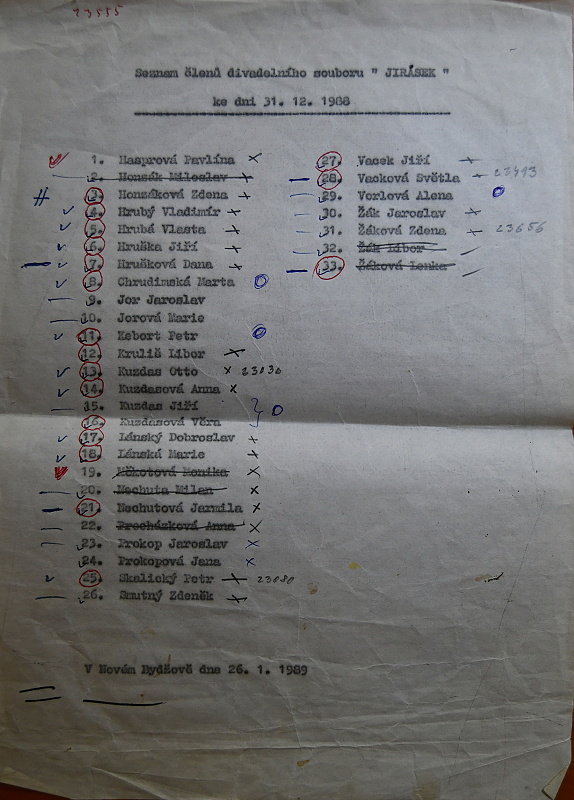 23555
Seznam členů divadelního souboru " JIRÁSEK "
ke dni 31. 12. 1988
1. Hasprová Pavlína
2. Honzák Miloslav
3. Honzáková Zdena
4. Hrubý Vladimír
5. Hrubá Vlasta
6. Hruška Jiří
7. Hrušková Dana
8. Chrudimská Marta
9. Jor Jaroslav
10. Jorová Marie
11. Kebort Petr
12. Kruliš Libor
13. Kuzdas Otto 23030
14. Kuzdasová Anna
15. Kuzdas Jiří
16. Kuzdasová Věra
17. Lánský Dobroslav
18. Lánská Marie
19. Mikotová Monika
20. Nechuta Milan
21. Nechutová Jarmila
22. Procházková Anna
23. Prokop Jaroslav
24. Prokopová Jana
25. Skalický Petr 23080
26. Smutný Zdeněk
27. Vacek Jiří
28. Vacková Světla 23493
29. Vorlová Alena
30. Žák Jaroslav
31. Žáková Zdena 23656
32. Žák Libor
33. Žáková Lenka
V Novém Bydžově dne 26. 1. 1989